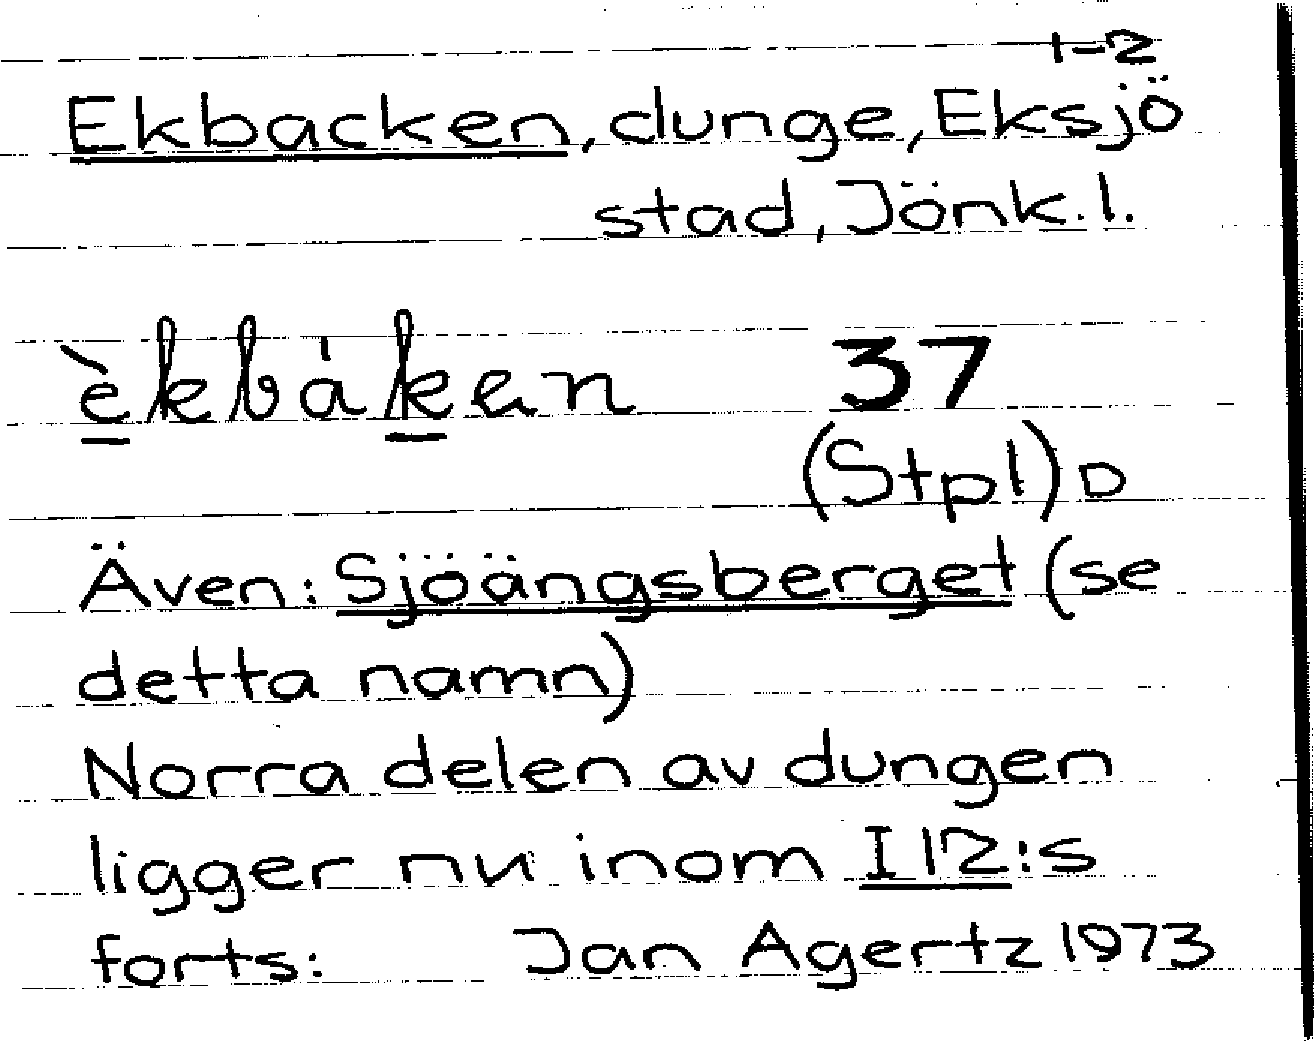 1-2
Ekbacken, dunge, Eksjö
stad, Jönk.l.
èkbàken 37
(Stpl) D
Även: Sjöängsberget (se
detta namn)
Norra delen av dungen
ligger nu inom I12:s
forts: Jan Agertz 1973